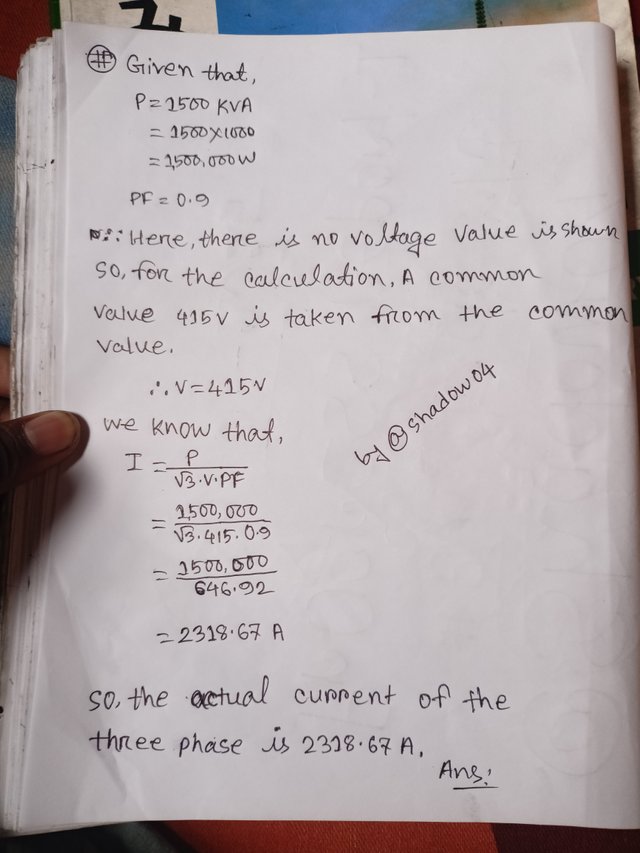 # Given that,
P = 1500 KVA
= 1500X1000
= 1,500,000W
PF = 0.9
Here, there is no voltage value is shown
so, for the calculation, A common
value 415V is taken from the common
value.
∴ V = 415V
we know that,
I = P / √3.V.PF
= 1,500,000 / √3.415.0.9
= 1500,000 / 646.92
= 2318.67 A
by @shadow04
so, the actual current of the
three phase is 2318.67 A.
Ans: